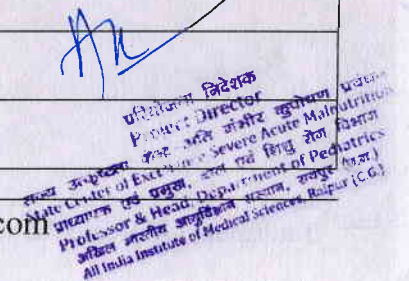 परियोजना निदेशक
Project Director
राज्य उत्कृष्टता केन्द्र अति गंभीर कुपोषण प्रबंधन
State Center of Excellence Severe Acute Malnutrition
प्राध्यापक एवं प्रमुख, बाल एवं शिशु रोग विभाग
Professor & Head, Department of Pediatrics
अखिल भारतीय आयुर्विज्ञान संस्थान, रायपुर (छ.ग.)
All India Institute of Medical Sciences, Raipur (C.G.)
com